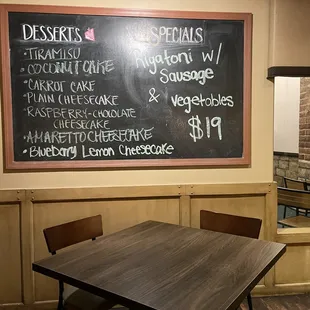 DESSERTS
• TIRAMISU
• COCONUT CAKE
• CARROT CAKE
• PLAIN CHEESECAKE
• RASPBERRY-CHOLOLATE
CHEESECAKE
• AMARETTO CHEESECAKE
• Blueberry Lemon Cheesecake
SPECIALS
Rigatoni w/
Sausage
& vegetables
$19